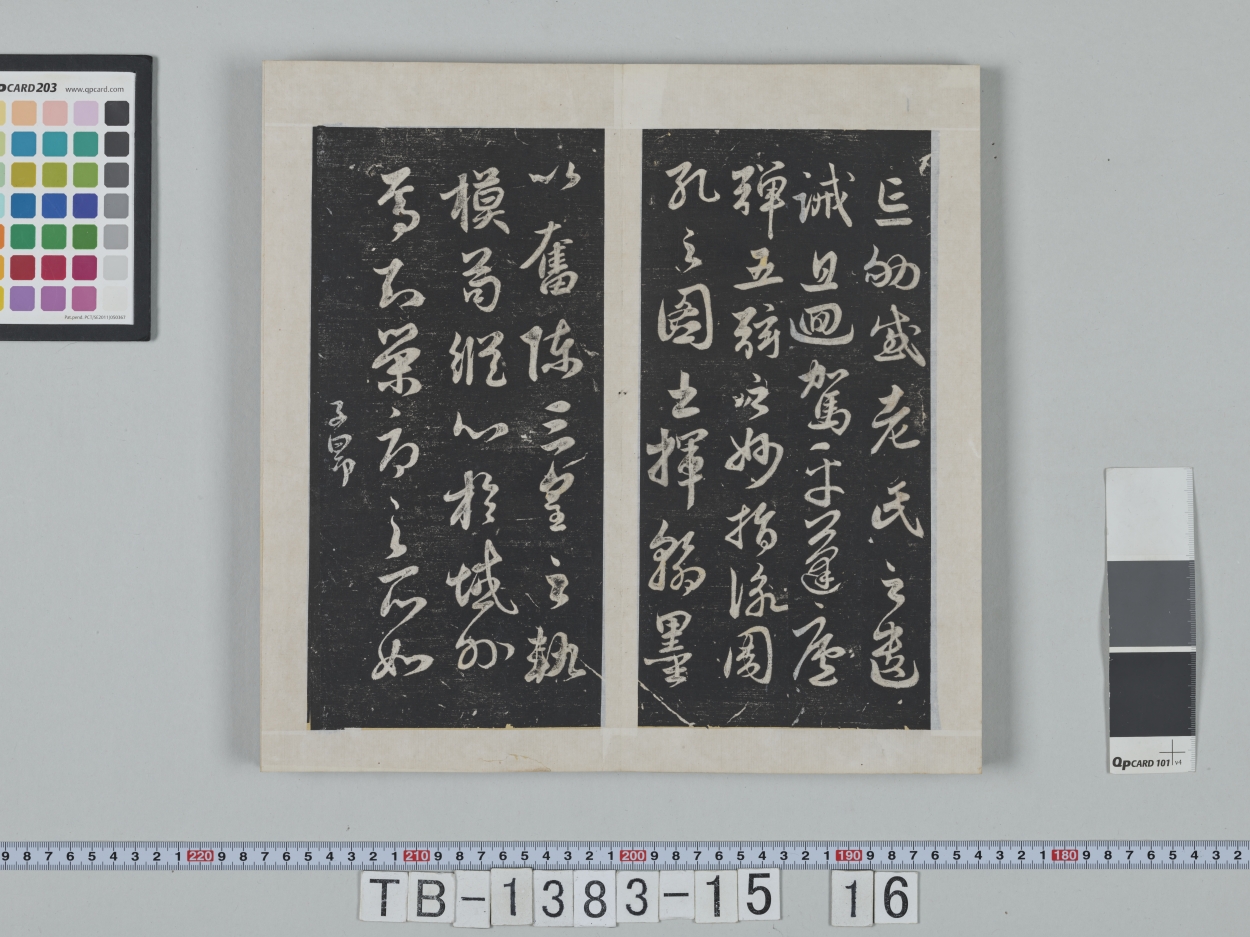 忘劬感老氏之遺
誡且迴駕乎蓬廬
彈五弦之妙指詠周
孔之圖書揮翰墨
以奮陳三皇之軌
模苟縱心於域外
焉知榮辱之所如
子昂
QPCARD 203 www.qpcard.com
QPCARD 101 v4
9 8 7 6 5 4 3 2 1 220 9 8 7 6 5 4 3 2 1 210 9 8 7 6 5 4 3 2 1 200 9 8 7 6 5 4 3 2 1 190 9 8 7 6 5 4 3 2 1 180 9 8 7 6 5 4 3 2
TB-1383-15 16